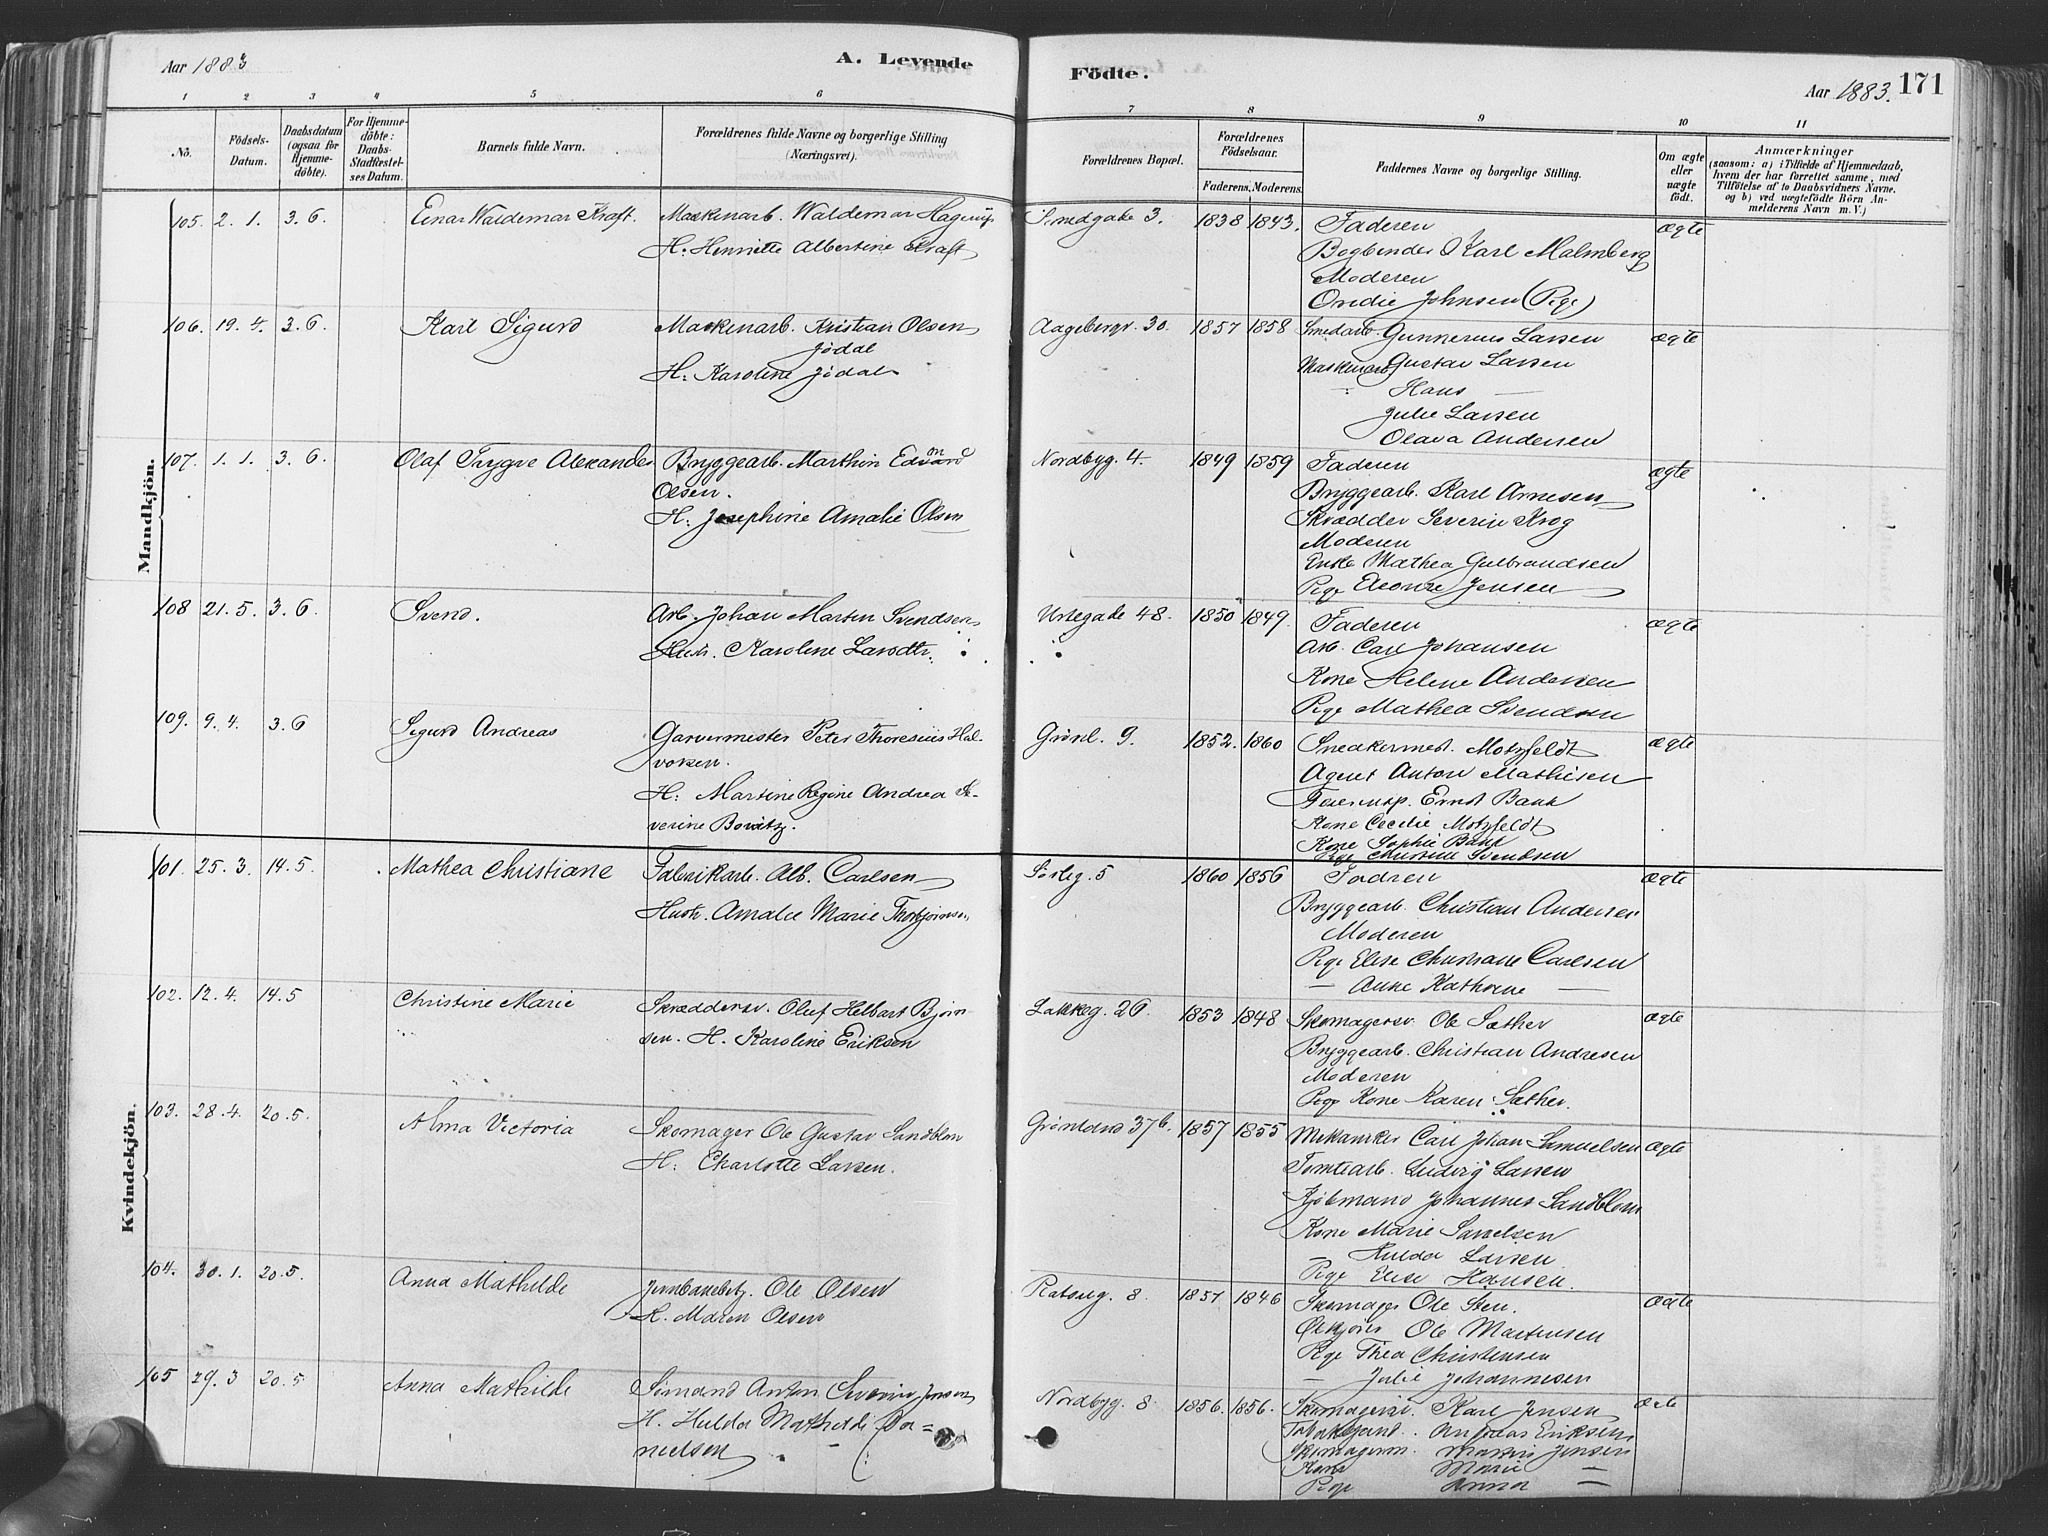 Aar 1883
A. Levende
Födte.
Aar 1883.
171
1 2 3 4 5 6 7 8 9 10 11
No.
Födsels-
Datum.
Daabsdatum
(ogsaa for
Hjemme-
döbte).
For Hjemme-
döbte:
Daabs-
Stadfæstel-
ses Datum.
Barnets fulde Navn.
Forældrenes fulde Navne og borgerlige Stilling
(Næringsvei).
Forældrenes Bopæl.
Forældrenes
Födselsaar.
Faderens. Moderens.
Faddernes Navne og borgerlige Stilling.
Om ægte
eller
uægte
födt.
Anmærkninger
(saasom: a) i Tilfælde af Hjemmedaab,
hvem der har forrettet samme, med
Tilföielse af to Daabsvidners Navne.
og b) ved uægtefödte Börn An-
melderens Navn m. V.)
Mandkjön.
105. 2. 1. 3. 6. Einar Waldemar Kraft. Maskinarb. Waldemar Hagerup
H: Henriette Albertine Kraft
Smedgade 3. 1838 1843. Faderen ægte
Bogbinder Karl Malmberg
Moderen
Ovedie Johnsen (Pige)
106. 19. 4. 3. 6. Karl Sigurd Maskinarb. Kristian Olsen
Jødal
H: Karoline Jødal
Aagebergv. 30. 1857 1858 Smedarb. Gunnerius Larsen ægte
Maskinarb. Gustav Larsen
— Hans —
Julie Larsen
Olava Andersen
107. 1. 1. 3. 6. Olaf Trygve Alexander Bryggearb. Marthin Edvard
Olsen.
H. Josephine Amalie Olsen
Nordbyg. 4. 1849 1859 Faderen ægte
Bryggearb. Karl Arnesen
Skrædder Severin Krog
Moderen
Enke Mathea Gulbrandsen
Pige Leonze Jensen
108 21. 5. 3. 6. Svend. Arb. Johan Martin Svendsen
Hustr. Karoline Larsdtr.
Urtegade 48. 1850 1849. Faderen ægte
Arb. Carl Johansen
Kone Helene Andersen
Pige Mathea Svendsen
109. 9. 4. 3. 6 Sigurd Andreas Garvermester Peter Thoresius Hal-
vorsen.
H: Martine Regine Andrea Se-
verine Bowitz.
Grønl. 9. 1852. 1860 Snedkermest. Motzfeldt ægte
Agent Anton Mathisen
Ernst Bank
Kone Cecilie Motzfeldt
Kone Sophie Bank
Pige Christine Svendsen
Kvindekjön.
101. 25. 3. 14. 5. Mathea Christiane Fabrikarb. Alb. Carlsen
Hustr. Amalie Marie Thorbjørnsen
Sørlig. 5 1860 1856 Fadren ægte
Bryggearb. Christian Andersen
Moderen
Pige Elise Christiane Carlsen
— Anne Kathrine —
102. 12. 4. 14. 5 Christine Marie Skræddersv. Oluf Helbart Bjørn-
sen. H. Karoline Eriksen
Lakkeg. 26. 1853 1848 Skomagersv. Ole Sæther ægte
Bryggearb. Christian Andresen
Moderen
Pige Kone Karen Sæther.
103. 28. 4. 20. 5. Alma Victoria Skomager Ole Gustav Sandblom
H: Charlotte Larsen.
Grønland 37b. 1857 1855 Mekaniker Carl Johan Samuelsen ægte
Tomtearb. Ludvig Larsen
Kjøbmand Johannes Sandblom
Kone Marie Samelsen
— Hulda Larsen
Pige Elise Hansen.
104. 30. 1. 20. 5. Anna Mathilde Jernbanebetj. Ole Olsen
H. Maren Olsen
Platoug. 8. 1857. 1846 Skomager Ole Sten. ægte
Ølkjører Ole Martinsen
Pige Thea Christensen
— Julie Johannesen
105 29. 3 20. 5 Anna Mathilde Sømand Anton Severin Jensen
H. Hulda Mathilde Da-
nielsen
Nordbyg. 8 1856. 1856. Skomagersv. Karl Jensen
Andreas Eriksen
Martin Jensen
Kone Marie —
Pige Anna —